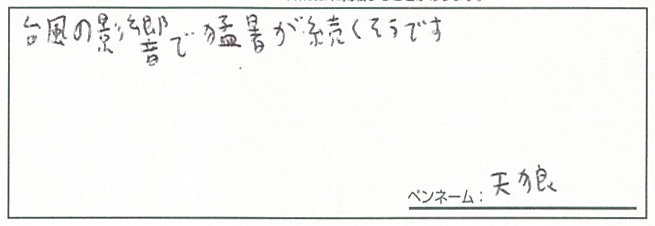 台風の影響で猛暑が続くそうです
ペンネーム：天狼